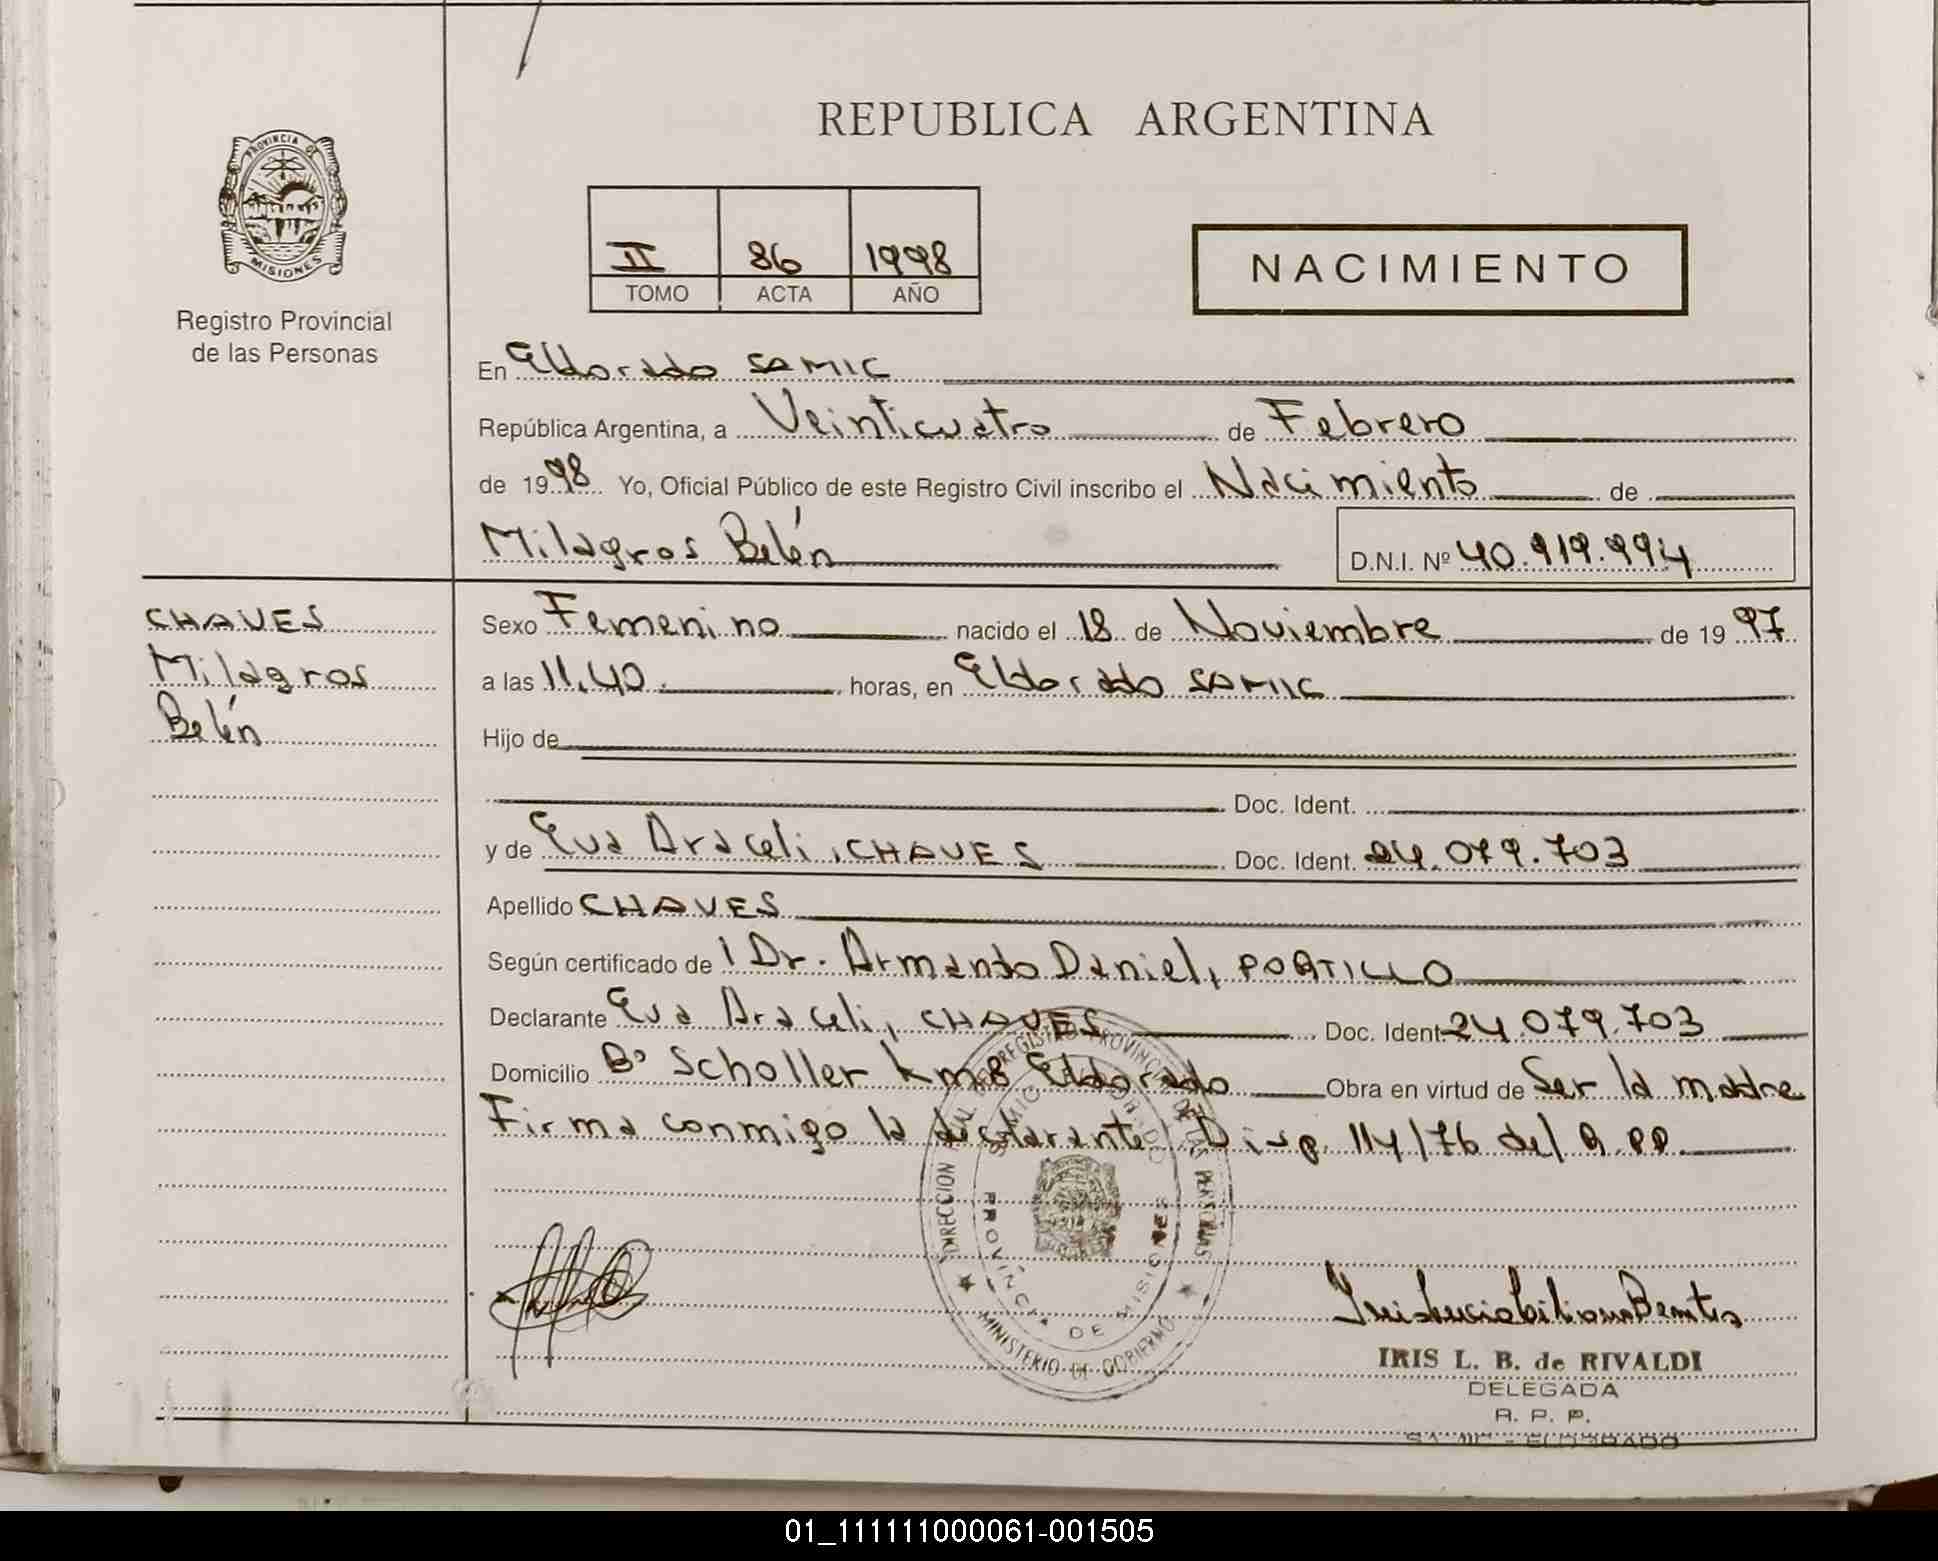 REPUBLICA ARGENTINA
PROVINCIA DE
MISIONES
Registro Provincial
de las Personas
II 86 1998
TOMO ACTA AÑO
NACIMIENTO
En Eldorado SAMIC
República Argentina, a Veinticuatro de Febrero
de 1998 Yo, Oficial Público de este Registro Civil inscribo el Nacimiento de
Milagros Belén D.N.I. Nº 40.919.994
CHAVES
Milagros
Belén
Sexo Femenino nacido el 18 de Noviembre de 1997
a las 11.40. horas, en Eldorado SAMIC
Hijo de
Doc. Ident.
y de Eva Araceli, CHAVES Doc. Ident. 24.079.703
Apellido CHAVES
Según certificado de 1 Dr. Armando Daniel, PORTILLO
Declarante Eva Araceli, CHAVES Doc. Ident. 24.079.703
Domicilio Bº Scholler km 8 Eldorado Obra en virtud de Ser la madre
Firma conmigo la declarante) Disp. 114/76 del R.PP.
DIRECCION REGISTRO PROVINCIAL DE LAS PERSONAS
PROVINCIA DE MISIONES
MINISTERIO DE GOBIERNO
IRIS L. B. de RIVALDI
DELEGADA
R. P. P.
SAMIC - ELDORADO
01_111111000061-001505